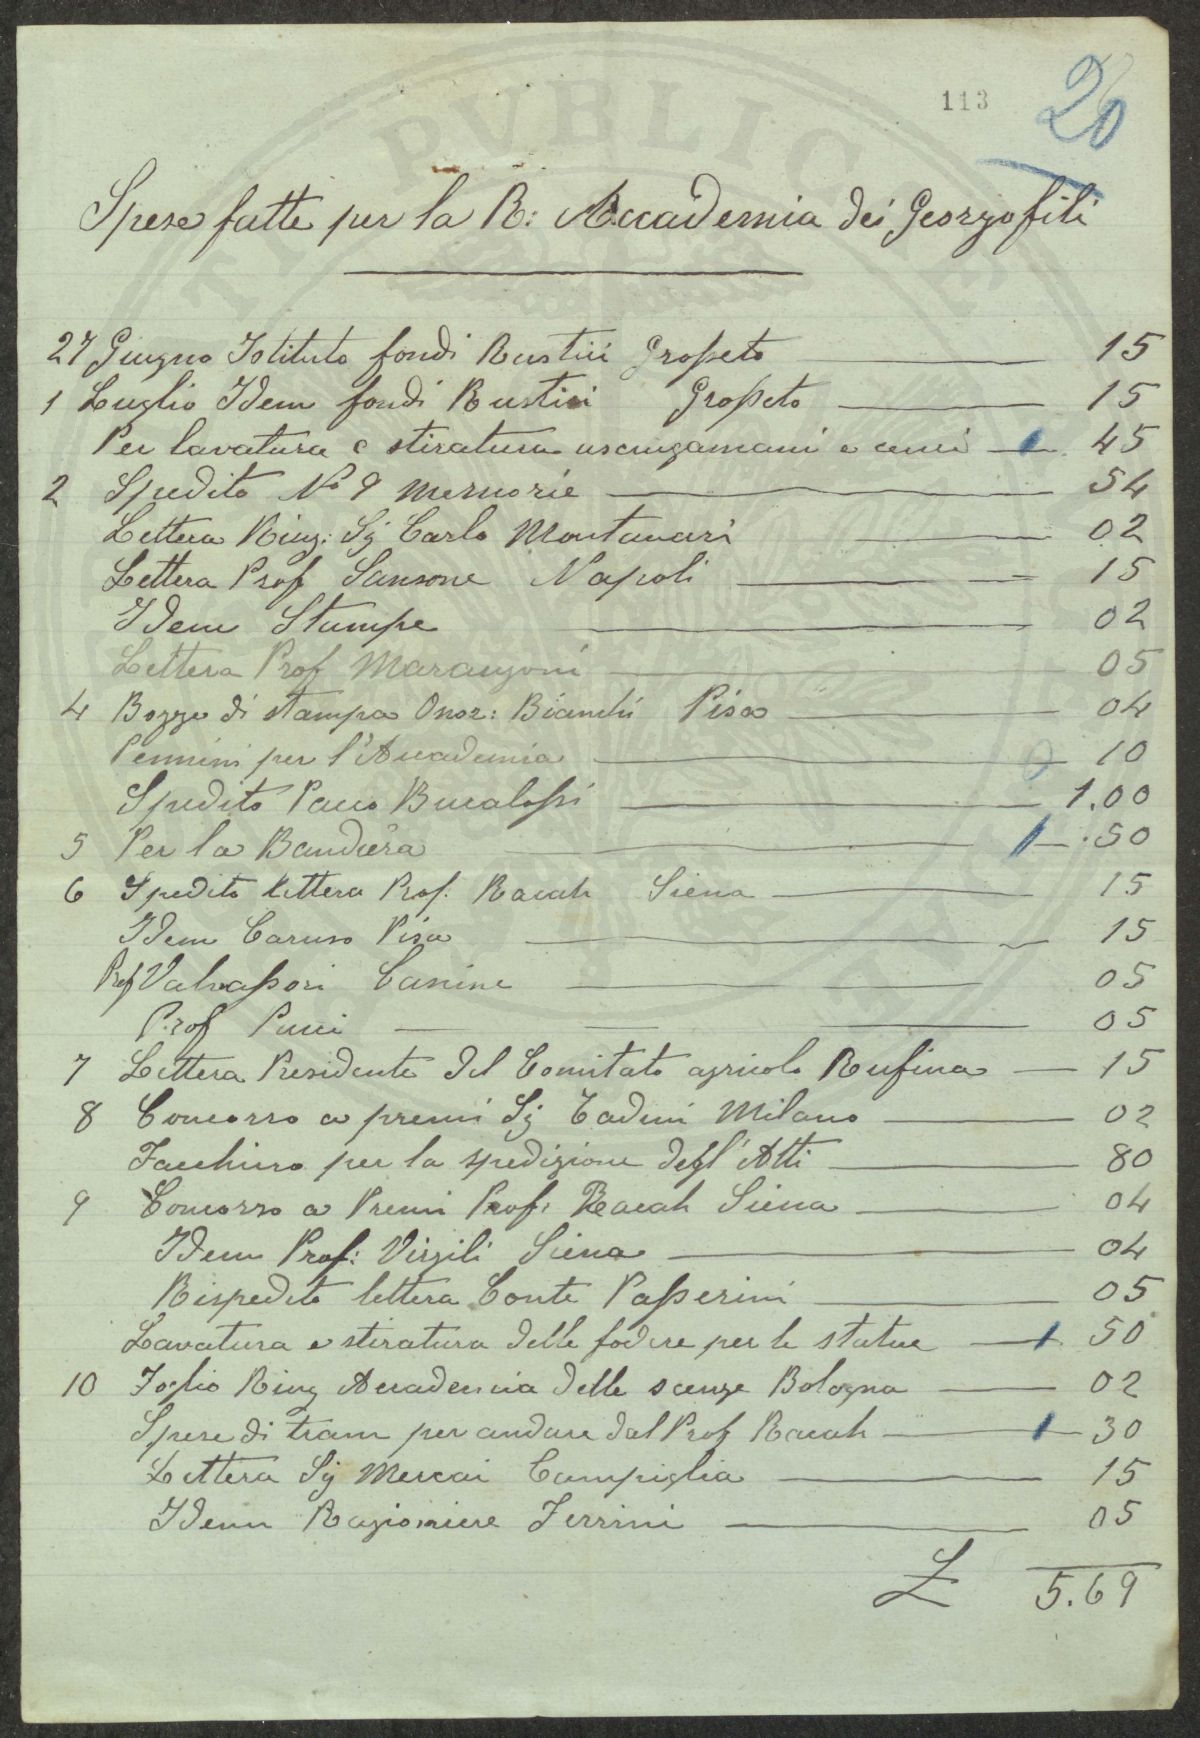 113
20
Spese fatte per la R: Accademia dei Georgofili
27 Giugno Istituto fondi Rustici Grosseto 15
1 Luglio Idem fondi Rustici Grosseto 15
Per lavatura e stiratura asciugamani e cenci 45
2 Spedito No 9 memorie 54
Lettera Ring: Sg Carlo Montanari 02
Lettera Prof Sansone Napoli 15
Idem Stampe 02
Lettera Prof Marangoni 05
4 Bozze di stampa Onor: Bianchi Pisa 04
Pennini per l'Accademia 10
Spedito Pacco Bucalossi 1.00
5 Per la Bandiera .50
6 Spedito lettera Prof. Racah Siena 15
Idem Caruso Pisa 15
Prof Valvassori Canine 05
Prof Pucci 05
7 Lettera Presidente del Comitato agricolo Rufina 15
8 Concorso a premi Sg Tadini Milano 02
Facchino per la spedizione degl'Atti 80
9 Concorso a Premi Prof: Racah Siena 04
Idem Prof: Virgili Siena 04
Rispedito lettera Conte Passerini 05
Lavatura e stiratura delle fodere per le statue 50
10 Foglio Ring Accademia delle scenze Bologna 02
Spese di tram per andare dal Prof Racah 30
Lettera Sg Mercai Campiglia 15
Idem Ragioniere Ferrini 05
£ 5.69